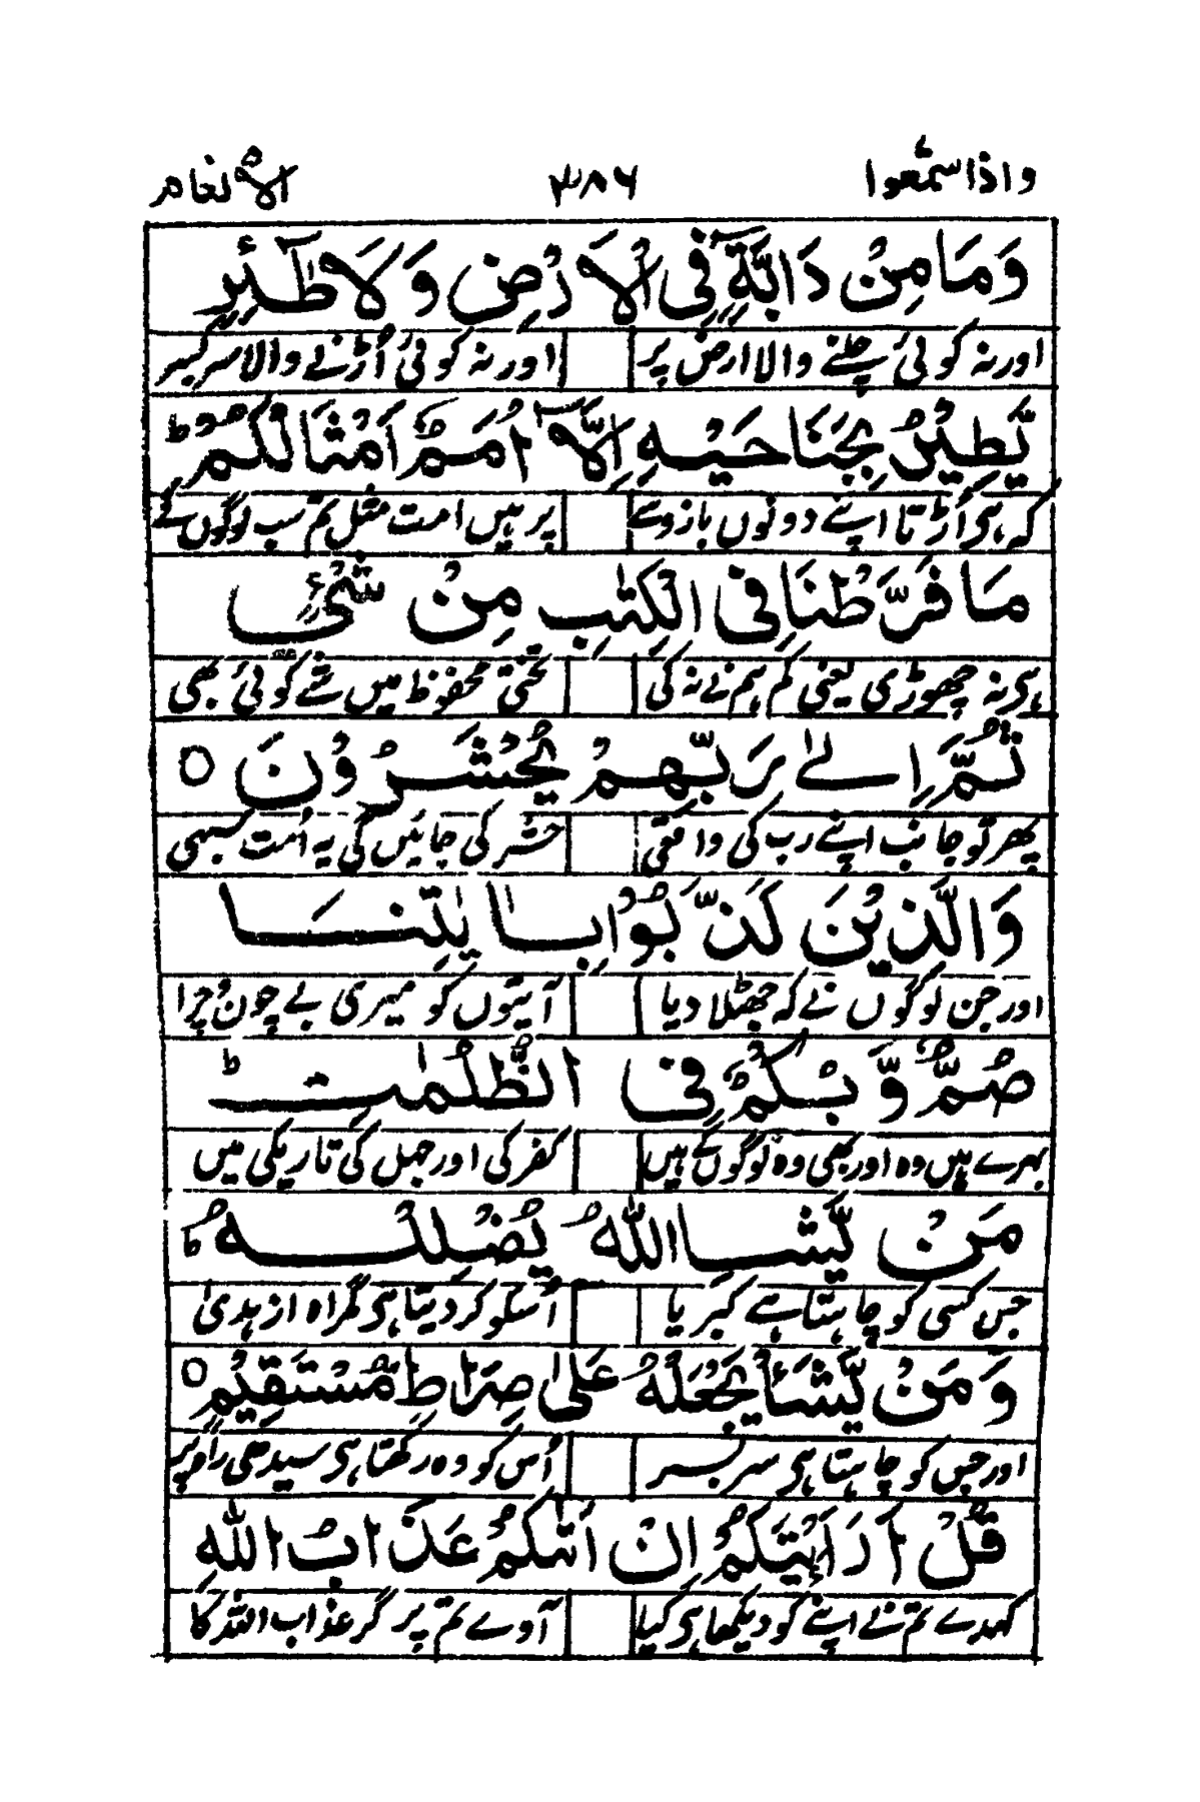 واذا سمعوا ۳۸۶ الانعام
وَمَا مِنْ دَابَّةٍ فِي الْاَرْضِ وَلَا طٰٓئِرٍ
اور نہ کوئی چلنے والا ارض پر اور نہ کوئی اُڑنے والا سر کبیر
يَّطِيْرُ بِجَنَاحَيْهِ اِلَّآ اُمَمٌ اَمْثَالُكُمْ ط
کہ ہی اُڑتا اپنے دونوں بازو سے پر ہیں امت مثل تم سب لوگوں کے
مَا فَرَّطْنَا فِي الْكِتٰبِ مِنْ شَيْءٍ
ہی نہ چھوڑی یعنی کم ہم نے نہ کی تختئ محفوظ میں شے کوئی بھی
ثُمَّ اِلٰى رَبِّهِمْ يُحْشَرُوْنَ ○
پھر تو جانب اپنے رب کی واقعی حشر کی جائیں گی یہ اُمت سبھی
وَالَّذِيْنَ كَذَّبُوْا بِاٰيٰتِنَا
اور جن لوگوں نے کہ جھٹلا دیا آیتوں کو میری بے چون و چرا
صُمٌّ وَّبُكْمٌ فِي الظُّلُمٰتِ ط
بہرے ہیں وہ اور بھی وہ لوگوں کے ہیں کفر کی اور جہل کی تاریکی میں
مَنْ يَّشَا اللّٰهُ يُضْلِلْهُ
جس کسی کو چاہتا ہے کبریا اُسکو کر دیتا ہی گمراہ از ہدیٰ
وَمَنْ يَّشَاْ يَجْعَلْهُ عَلٰى صِرَاطٍ مُّسْتَقِيْمٍ ○
اور جس کو چاہتا ہی سر بسر اُس کو وہ رکھتا ہی سیدھی راہ پر
قُلْ اَرَاَيْتَكُمْ اِنْ اَتٰىكُمْ عَذَابُ اللّٰهِ
کہدے تم نے اپنے کو دیکھا ہی کیا آوے تم پر گر عذاب اللہ کا